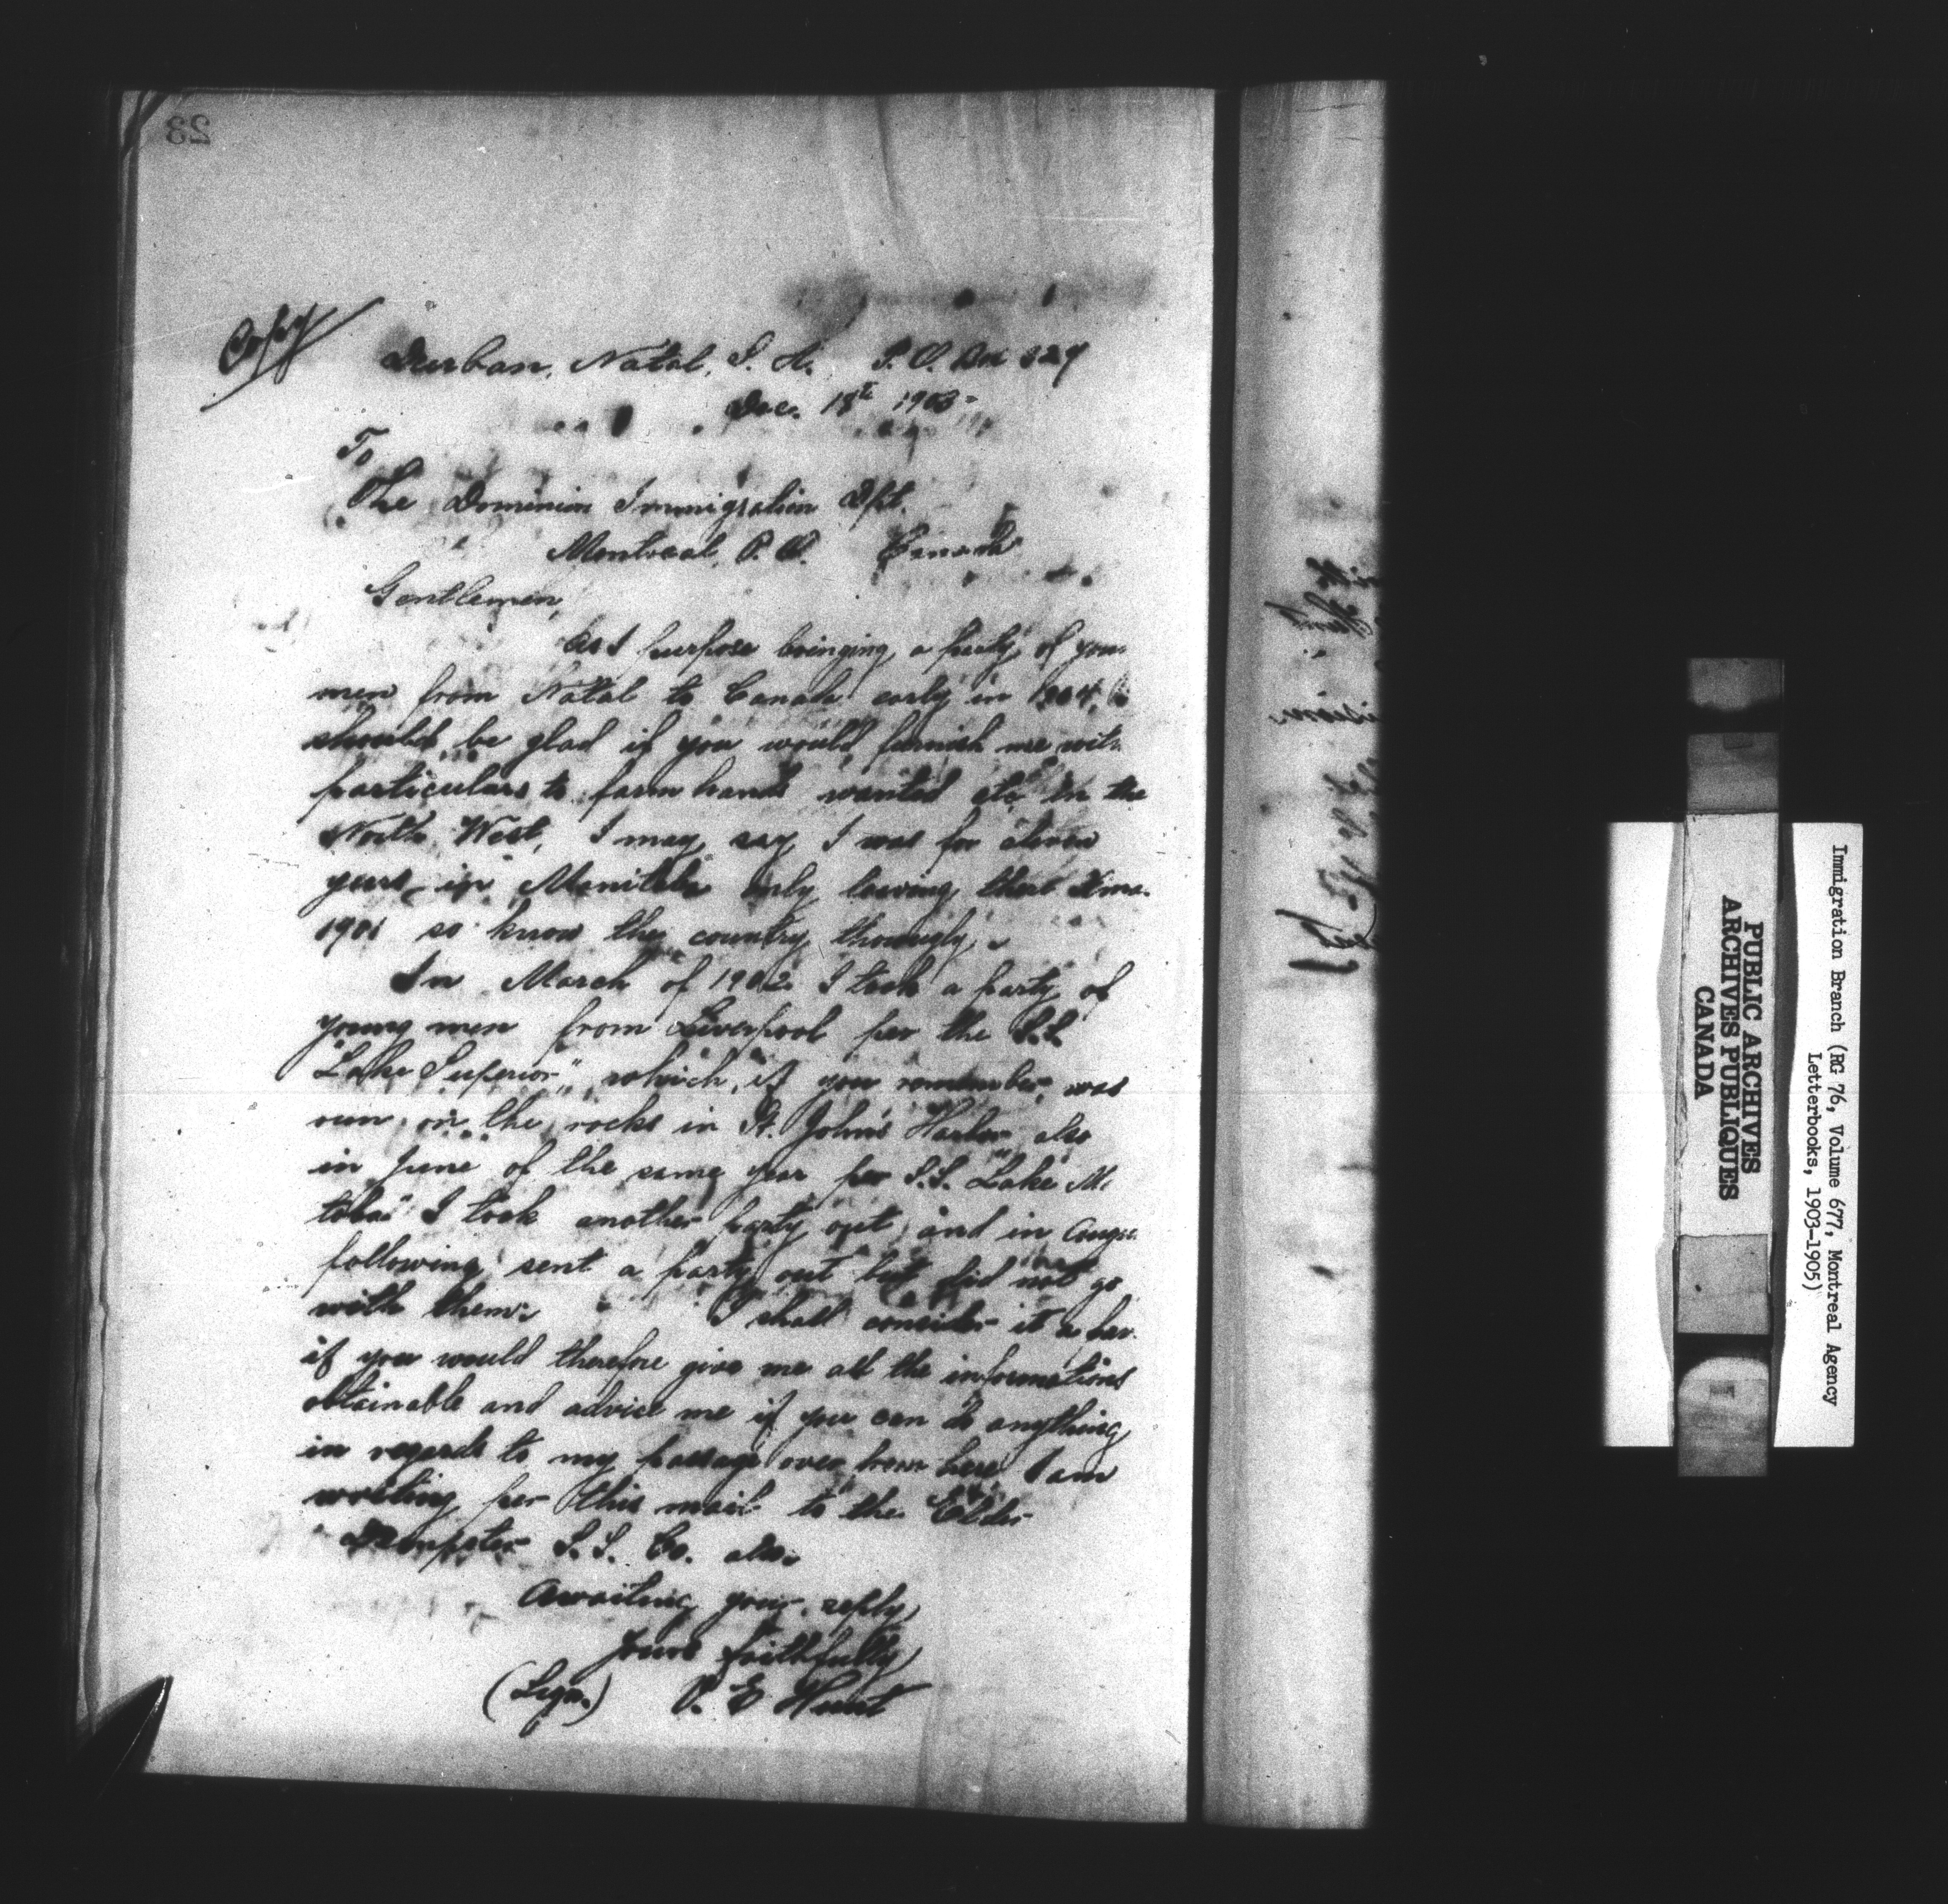 23
Copy
Durban, Natal, S. A. P. O. Box 329
Dec. 18th 1903
To
The Dominion Immigration Dpt.
Montreal, P. Q. Canada
Gentlemen,
As I purpose bringing a party of
men from Natal to Canada early in 1904, I
should be glad if you would furnish me with
particulars to farm hands wanted etc in the
North West, I may say I was for eleven
years in Manitoba only leaving there Xmas
1901 so know the country thoroughly.
In March of 1902 I took a party of
young men from Liverpool per the S.S.
"Lake Superior", which, if you remember, was
run on the rocks in St. John's Harbor also
in June of the same year per S.S. "Lake
toba" I took another party out, and in
following sent a party out but did not go
with them. I shall consider it a
if you would therefore give me all the informations
obtainable and advise me if you can do anything
in regards to my passage over from here. I am
writing per this mail to the Elder
Dempster S. S. Co. also.
Awaiting your reply
Yours faithfully
(Sgn.) E Hunt
PUBLIC ARCHIVES
ARCHIVES PUBLIQUES
CANADA
Immigration Branch (RG 76, Volume 677, Montreal Agency
Letterbooks, 1903-1905)